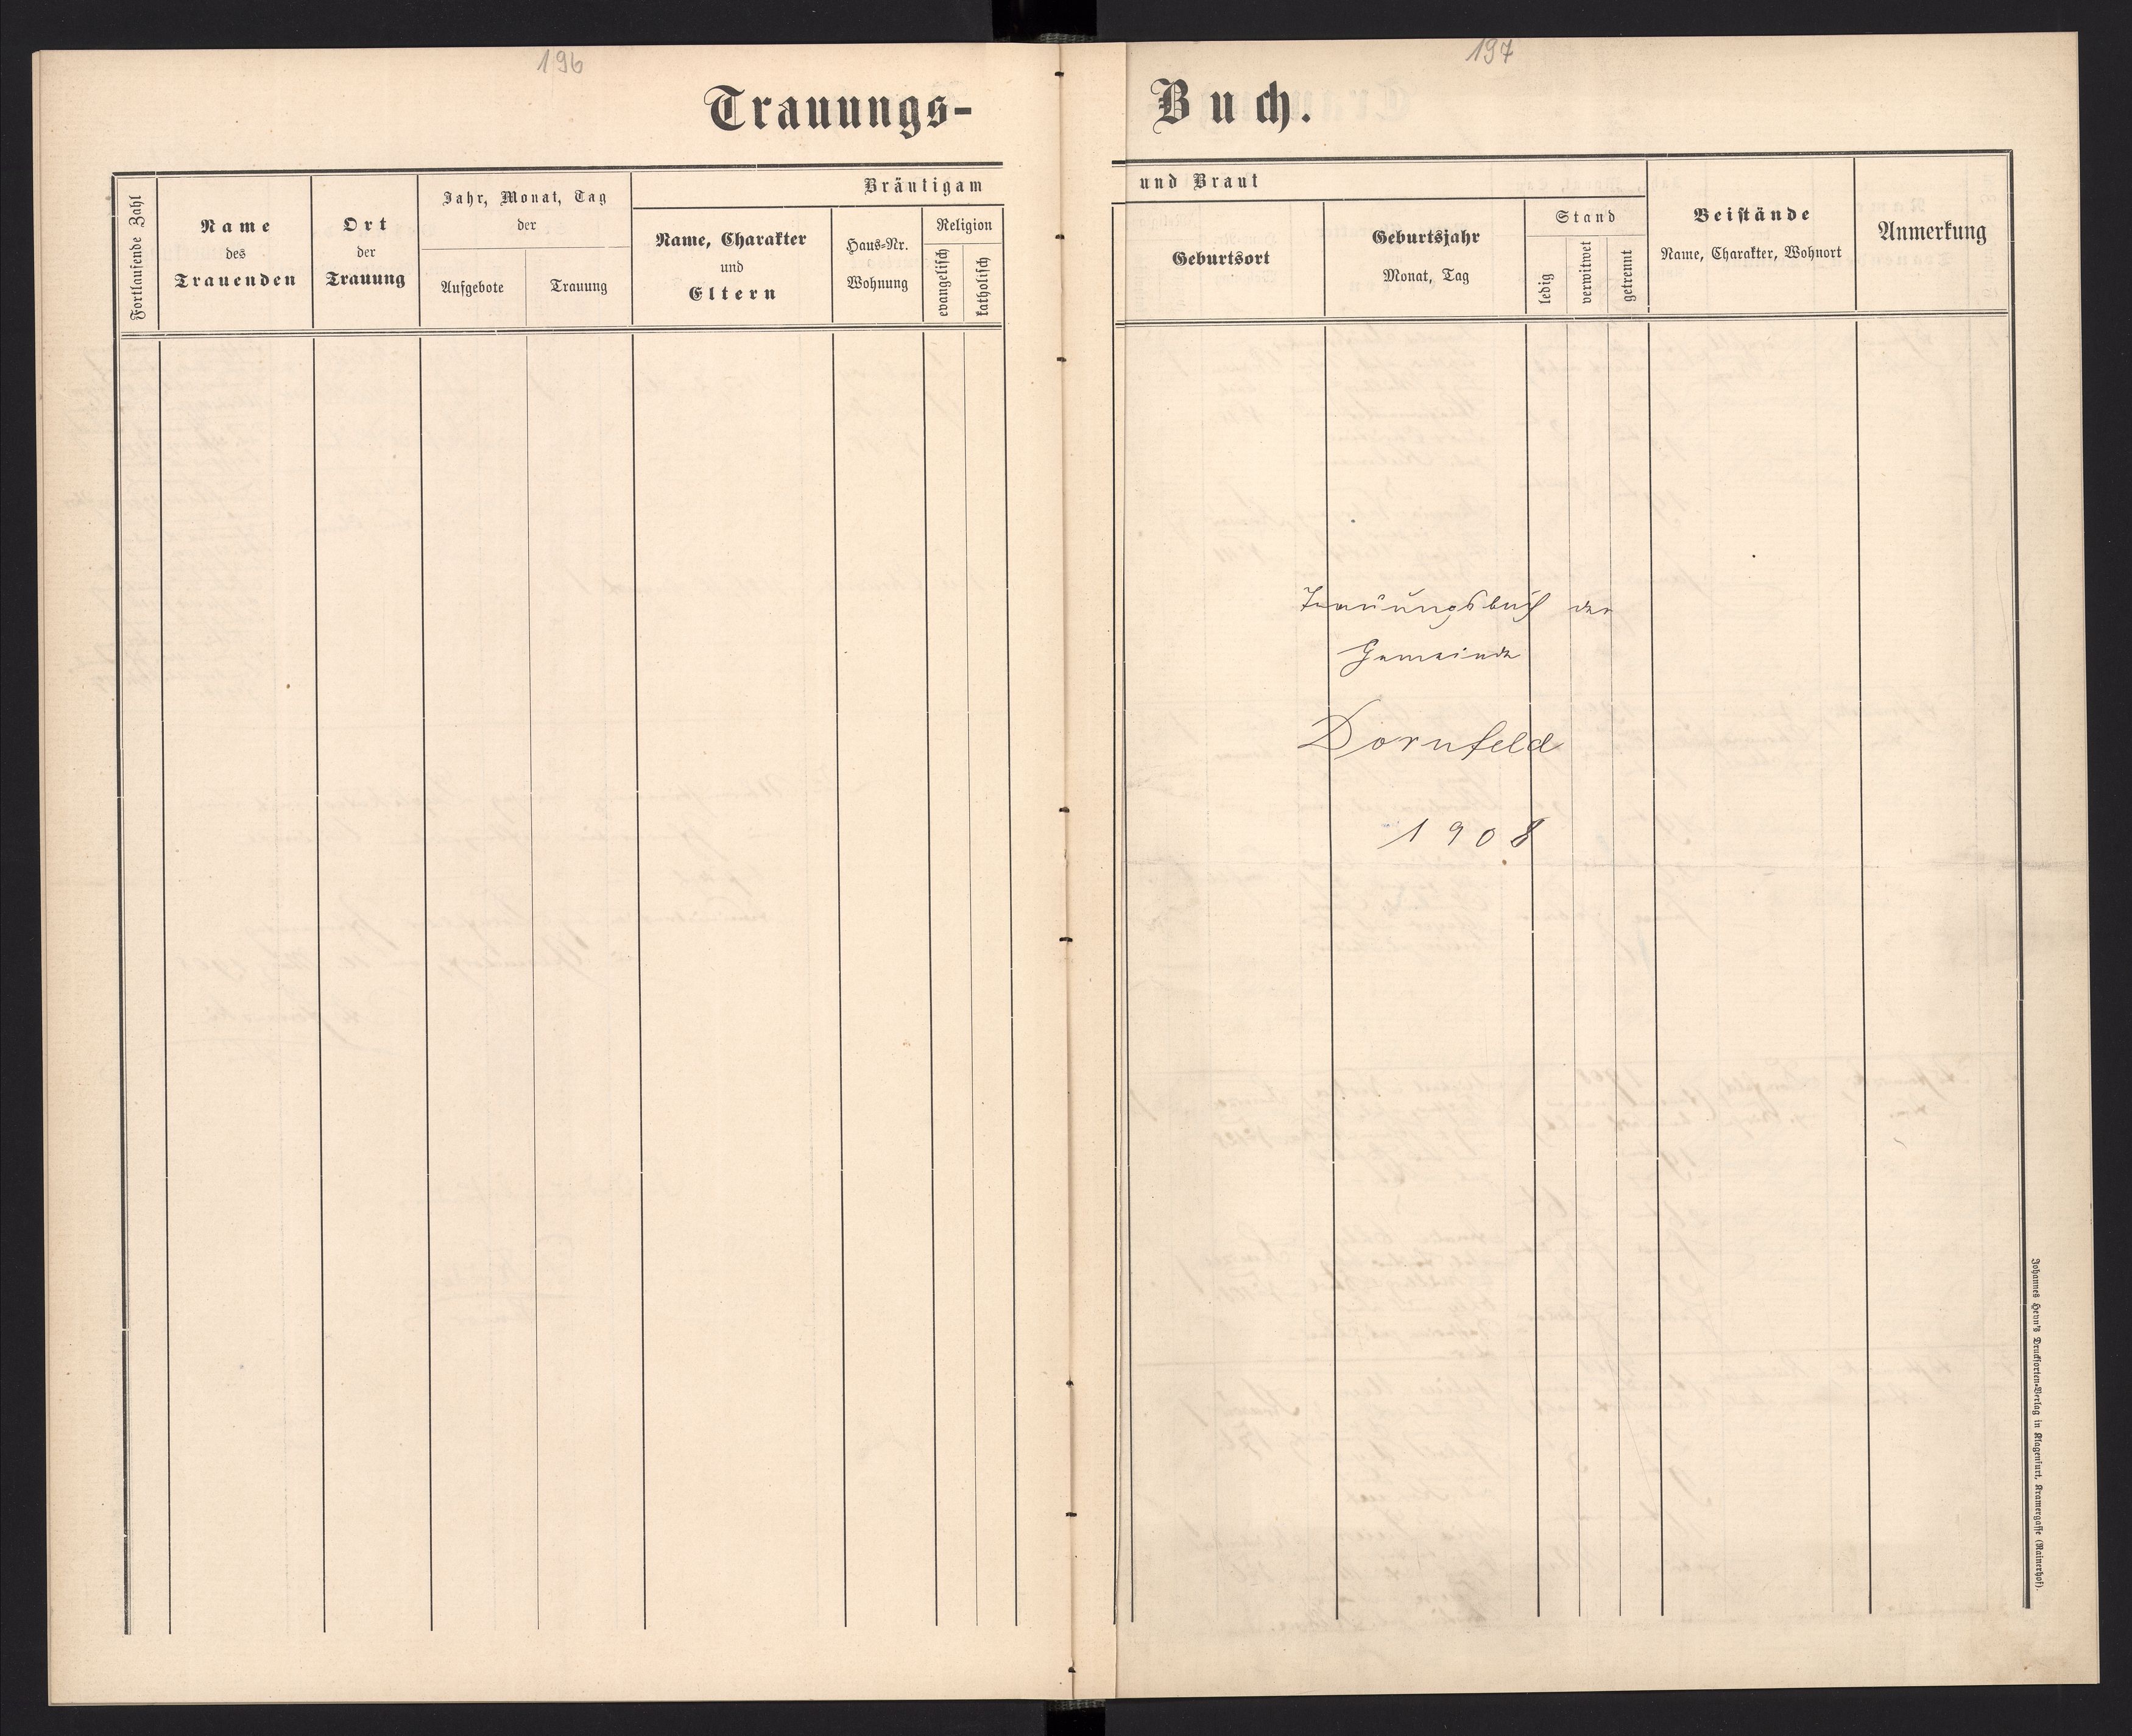 196
197
Trauungs-
Buch.
Fortlaufende Zahl
Name
des
Trauenden
Ort
der
Trauung
Jahr, Monat, Tag
der
Aufgebote
Trauung
Bräutigam
Name, Charakter
und
Eltern
Haus-Nr.
Wohnung
Religion
evangelisch
katholisch
und Braut
Geburtsort
Geburtsjahr
Monat, Tag
Stand
ledig
verwitwet
getrennt
Beistände
Name, Charakter, Wohnort
Anmerkung
Trauungsbuch der
Gemeinde
Dornfeld
1908
Johannes Heyn's Drucksorten-Verlag in Klagenfurt, Kramergasse (Rainerhof).